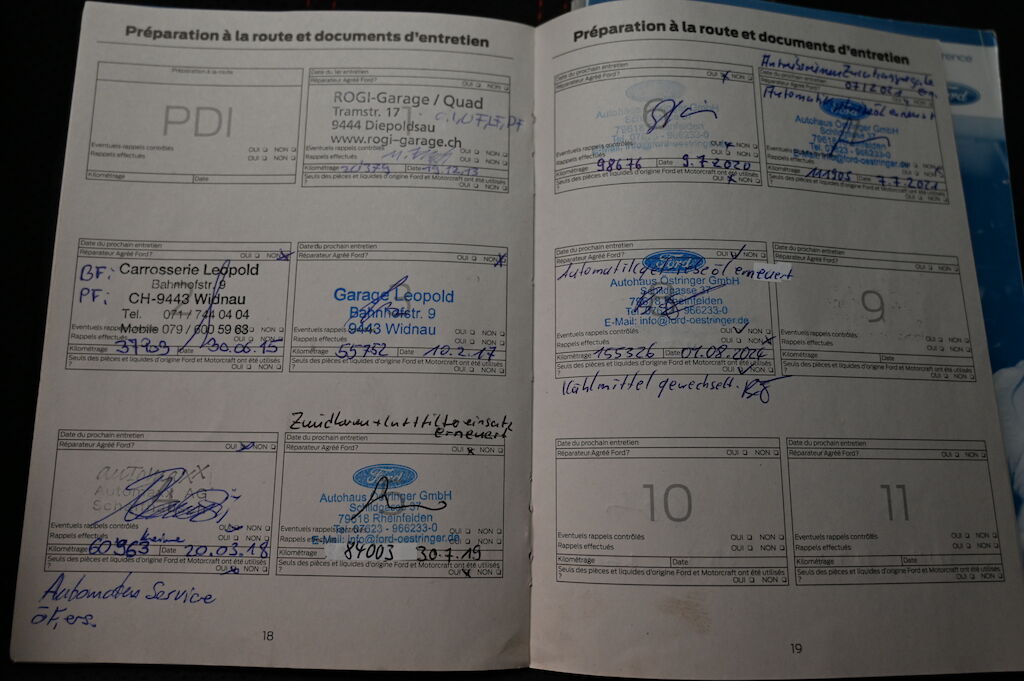 Préparation à la route et documents d'entretien
Préparation à la route
PDI
Eventuels rappels contrôlés OUI NON
Rappels effectués OUI NON
Kilométrage Date
Date du 1er entretien
Réparateur Agréé Ford? OUI NON
ROGI-Garage / Quad
Tramstr. 17
9444 Diepoldsau
www.rogi-garage.ch
OUI NON
OUI NON
Kilométrage 20379 Date 19.12.13
Seuls des pièces et liquides d'origine Ford et Motorcraft ont été utilisés
OUI NON
Date du prochain entretien
Réparateur Agréé Ford? OUI NON
BF: Carrosserie Leopold
PF: Bahnhofstr. 9
CH-9443 Widnau
Tel. 071 / 744 04 04
Mobile 079 / 600 59 63
Eventuels rappels contrôlés OUI NON
Rappels effectués OUI NON
Kilométrage 37969 Date 30.06.15
Seuls des pièces et liquides d'origine Ford et Motorcraft ont été utilisés
? OUI NON
Date du prochain entretien
Réparateur Agréé Ford? OUI NON
Garage Leopold
Bahnhofstr. 9
9443 Widnau
Eventuels rappels OUI NON
Rappels effectués OUI NON
Kilométrage 55752 Date 10.2.17
Seuls des pièces et liquides d'origine Ford et Motorcraft ont été utilisés
? OUI NON
Date du prochain entretien
Réparateur Agréé Ford? OUI NON
automaxx
AG
Eventuels rappels contrôlés OUI NON
Rappels effectués keine OUI NON
Kilométrage 60963 Date 20.03.18
Seuls des pièces et liquides d'origine Ford et Motorcraft ont été utilisés
? OUI NON
Automaten Service
Zündkerzen + Luftfiltereinsatz
erneuert
Date du prochain entretien
Réparateur Agréé Ford? OUI NON
Ford
Autohaus Östringer GmbH
Schildgasse 37
79618 Rheinfelden
Tel. 07623 - 966233-0
E-Mail: info@ford-oestringer.de
Eventuels rappels OUI NON
Rappels effectués OUI NON
Kilométrage 84003 30.7.19
Seuls des pièces et liquides d'origine Ford et Motorcraft ont été utilisés
? OUI NON
18
Préparation à la route et documents d'entretien
Date du prochain entretien
Réparateur Agréé Ford? OUI NON
6
Autohaus Östringer GmbH
79618 Rheinfelden
966233-0
info@ford-oestringer.de
Eventuels rappels contrôlés OUI NON
Rappels effectués OUI NON
Kilométrage 98676 Date 9.7.2020
Seuls des pièces et liquides d'origine Ford et Motorcraft ont été utilisés
? OUI NON
Date du prochain entretien
Réparateur Agréé Ford?
Autohaus Östringer GmbH
Tel. 07623 - 966233-0
E-Mail: info@ford-oestringer.de
Eventuels rappels
Rappels effectués
Kilométrage 111905 Date 7.7.2021
Seuls des pièces et liquides d'origine Ford et Motorcraft ont été utilisés
? OUI NON
Date du prochain entretien
Réparateur Agréé Ford? OUI NON
Ford
Automatikgetriebeöl erneuert
Autohaus Östringer GmbH
Schildgasse 37
79618 Rheinfelden
Tel. 07623 - 966233-0
E-Mail: info@ford-oestringer.de
Eventuels rappels contrôlés OUI NON
Rappels effectués OUI NON
Kilométrage 155326 Date 01.08.2024
Seuls des pièces et liquides d'origine Ford et Motorcraft ont été utilisés
? OUI NON
Kühlmittel gewechselt.
Date du prochain entretien
Réparateur Agréé Ford? OUI NON
9
Eventuels rappels contrôlés OUI NON
Rappels effectués OUI NON
Kilométrage Date
Seuls des pièces et liquides d'origine Ford et Motorcraft ont été utilisés
? OUI NON
Date du prochain entretien
Réparateur Agréé Ford? OUI NON
10
Eventuels rappels contrôlés OUI NON
Rappels effectués OUI NON
Kilométrage Date
Seuls des pièces et liquides d'origine Ford et Motorcraft ont été utilisés
? OUI NON
Date du prochain entretien
Réparateur Agréé Ford? OUI NON
11
Eventuels rappels contrôlés OUI NON
Rappels effectués OUI NON
Kilométrage Date
Seuls des pièces et liquides d'origine Ford et Motorcraft ont été utilisés
? OUI NON
19
Ford